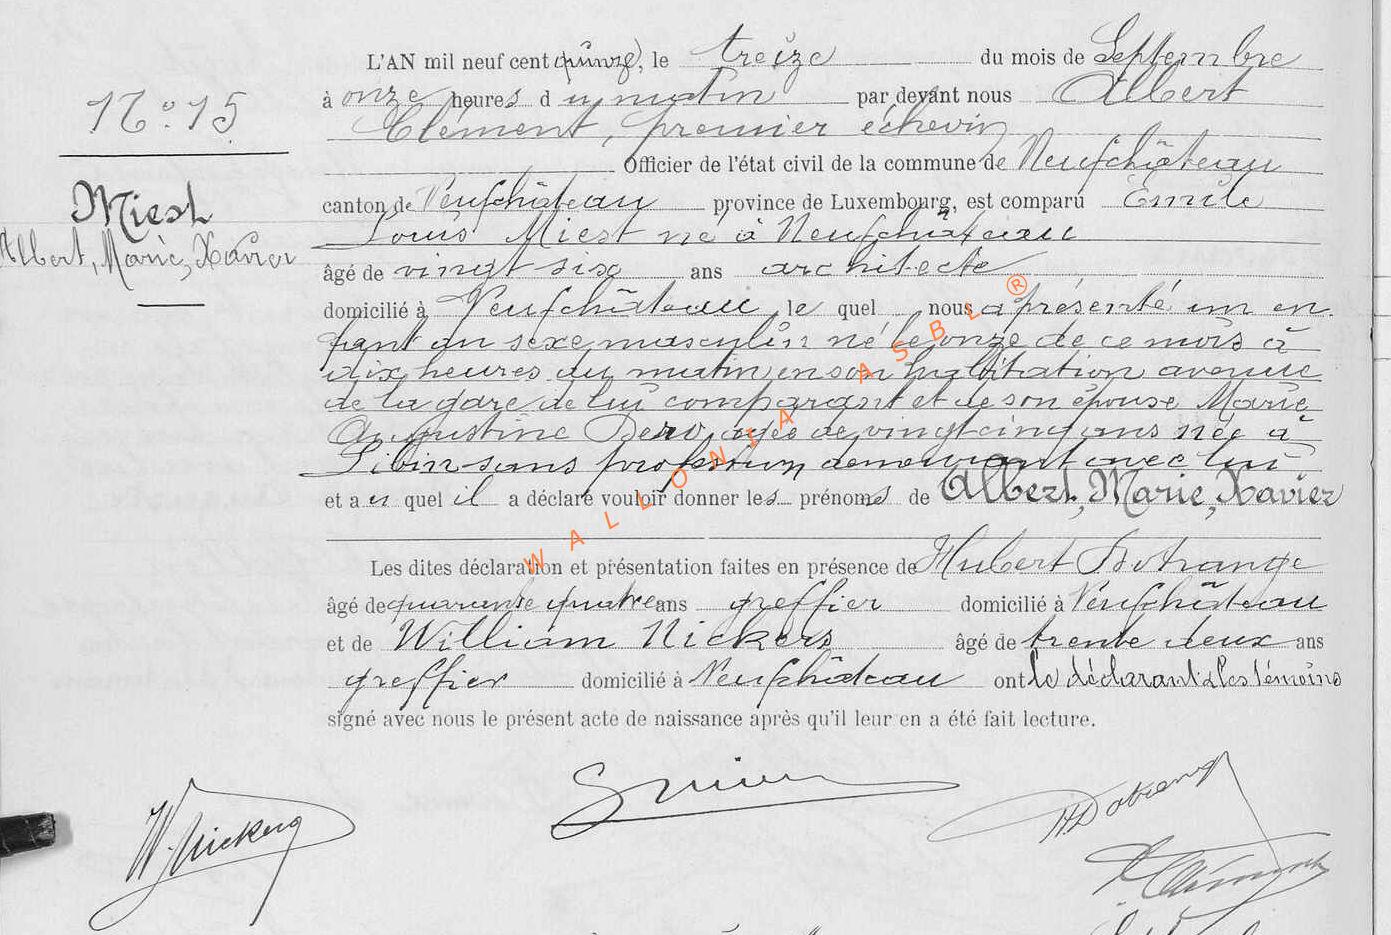 L'AN mil neuf cent quinze, le treize du mois de Septembre
N° 15
à onze heures du matin par devant nous Albert
Clément, premier échevin
Officier de l'état civil de la commune de Neufchâteau
Miest
canton de Neufchâteau province de Luxembourg, est comparu Emile
Louis Miest né à Neufchâteau
Albert, Marie, Xavier
âgé de vingt six ans architecte
domicilié à Neufchâteau le quel nous a présenté un en-
fant du sexe masculin né le onze de ce mois à
dix heures du matin en son habitation avenue
de la gare de lui comparant et de son épouse Marie
Augustine agée de vingt cinq ans née à
Libin sans profession demeurant avec lui
et au quel il a déclaré vouloir donner les prénoms de Albert, Marie, Xavier
Les dites déclaration et présentation faites en présence de Hubert
âgé de quarante quatre ans greffier domicilié à Neufchâteau
et de William Nickers âgé de trente deux ans
greffier domicilié à Neufchâteau ont le déclarant & les témoins
signé avec nous le présent acte de naissance après qu'il leur en a été fait lecture.
W. Nickers
WALLONIA ASBL ®